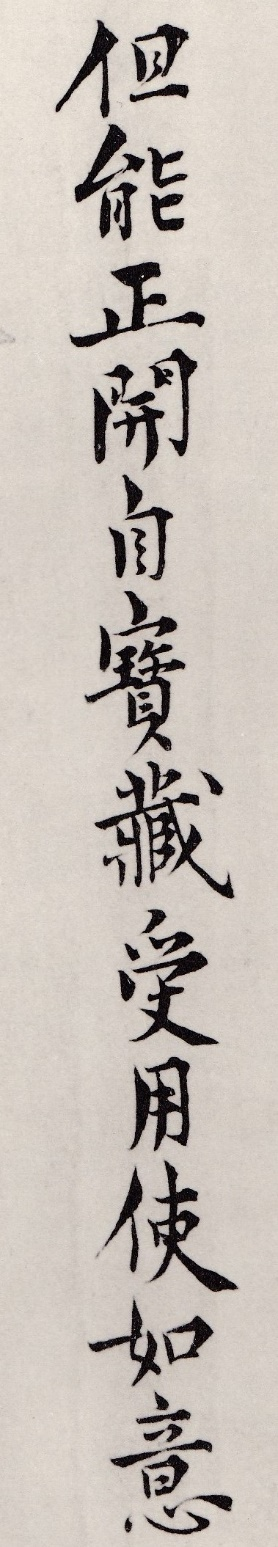 但能正開自寶藏受用使如意